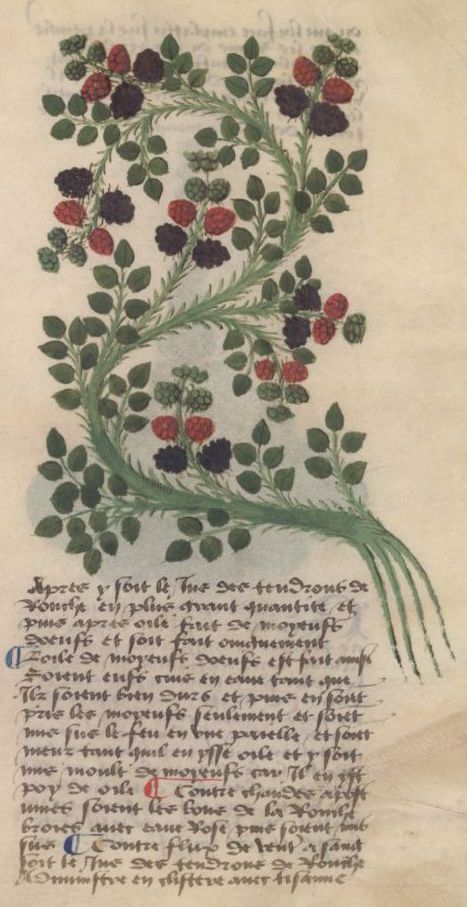 Apres y soit le Jus des tendrons de
Ronche en plus grant quantite et
puis apres oile fait de moyeufs
doeufs et soit fait oingnement
Loile de moyeufs doeufs est fait ainsi
Soient eufs cuis en eaue tant que
Ilz soient bien durs et puis en soit
pris les moyeufs seulement et soiet
mis sus le feu en une paielle et soiet
meuz tant quil en ysse oile et y soit
mis moult de moyeufs car Il en yst
poy de oile Contre chaudes apost
umes soient les bous de la Ronche
broies avec eaue Rose puis soient mis
sus Contre flux de ventr a sang
soit le Jus des tendrons de Ronche
Administre en clistere avec tisanne